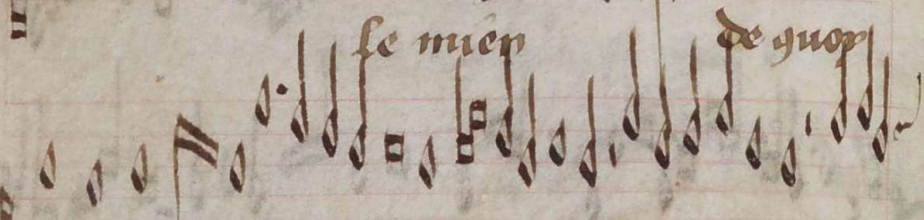 le mien de quoy